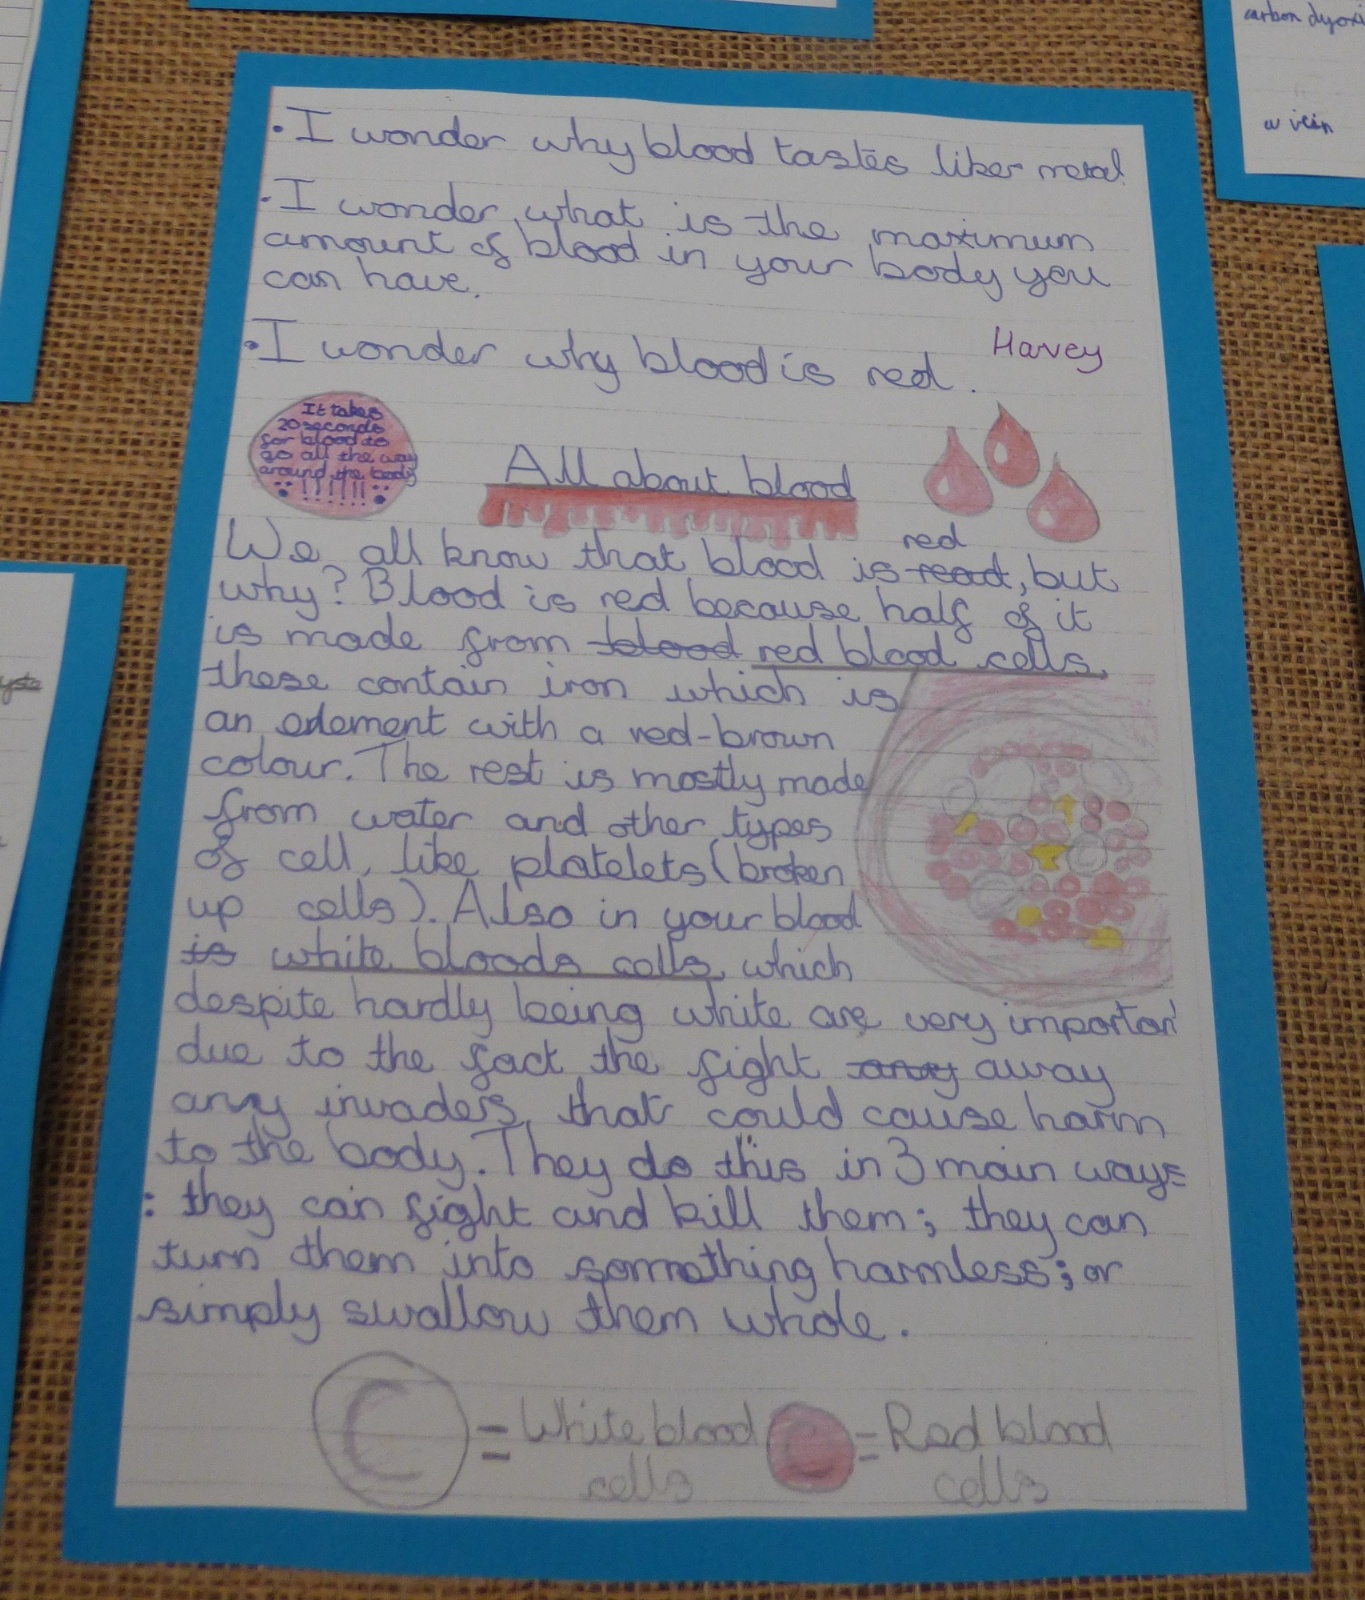 carbon dyoxi
a vein
• I wonder why blood tastes liker metal
• I wonder what is the maximum
amount of blood in your body you
can have.
• I wonder why blood is red.
Harvey
It takes
20 seconds
for blood to
go all the way
around the body
!!!!!!
All about blood
red
We all know that blood is read, but
why? Blood is red because half of it
is made from blood red blood cells,
these contain iron which is
an element with a red-brown
colour. The rest is mostly made
from water and other types
of cell, like platelets (broken
up cells). Also in your blood
is white bloods cells, which
despite hardly being white are very importan
due to the fact the fight away
any invaders that could cause harm
to the body. They do this in 3 main ways
: they can fight and kill them; they can
turn them into something harmless; or
simply swallow them whole.
= White blood
cells
= Red blood
cells